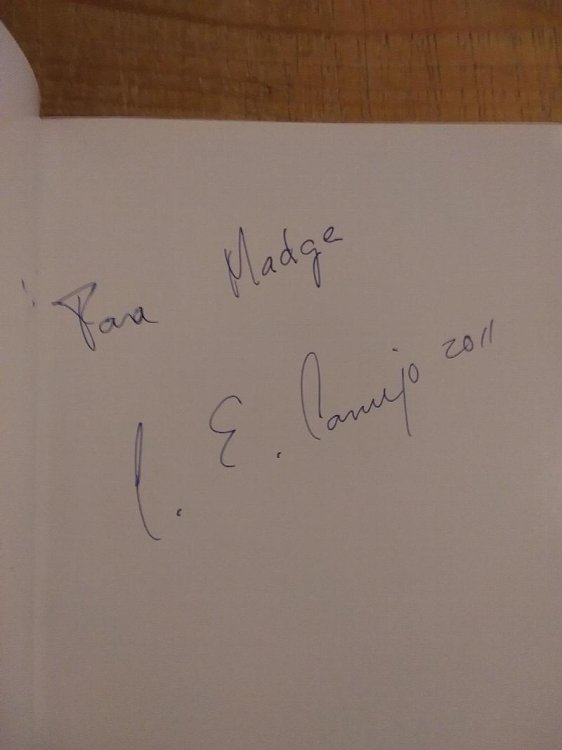 Para Madge
C. E. Cornejo 2011